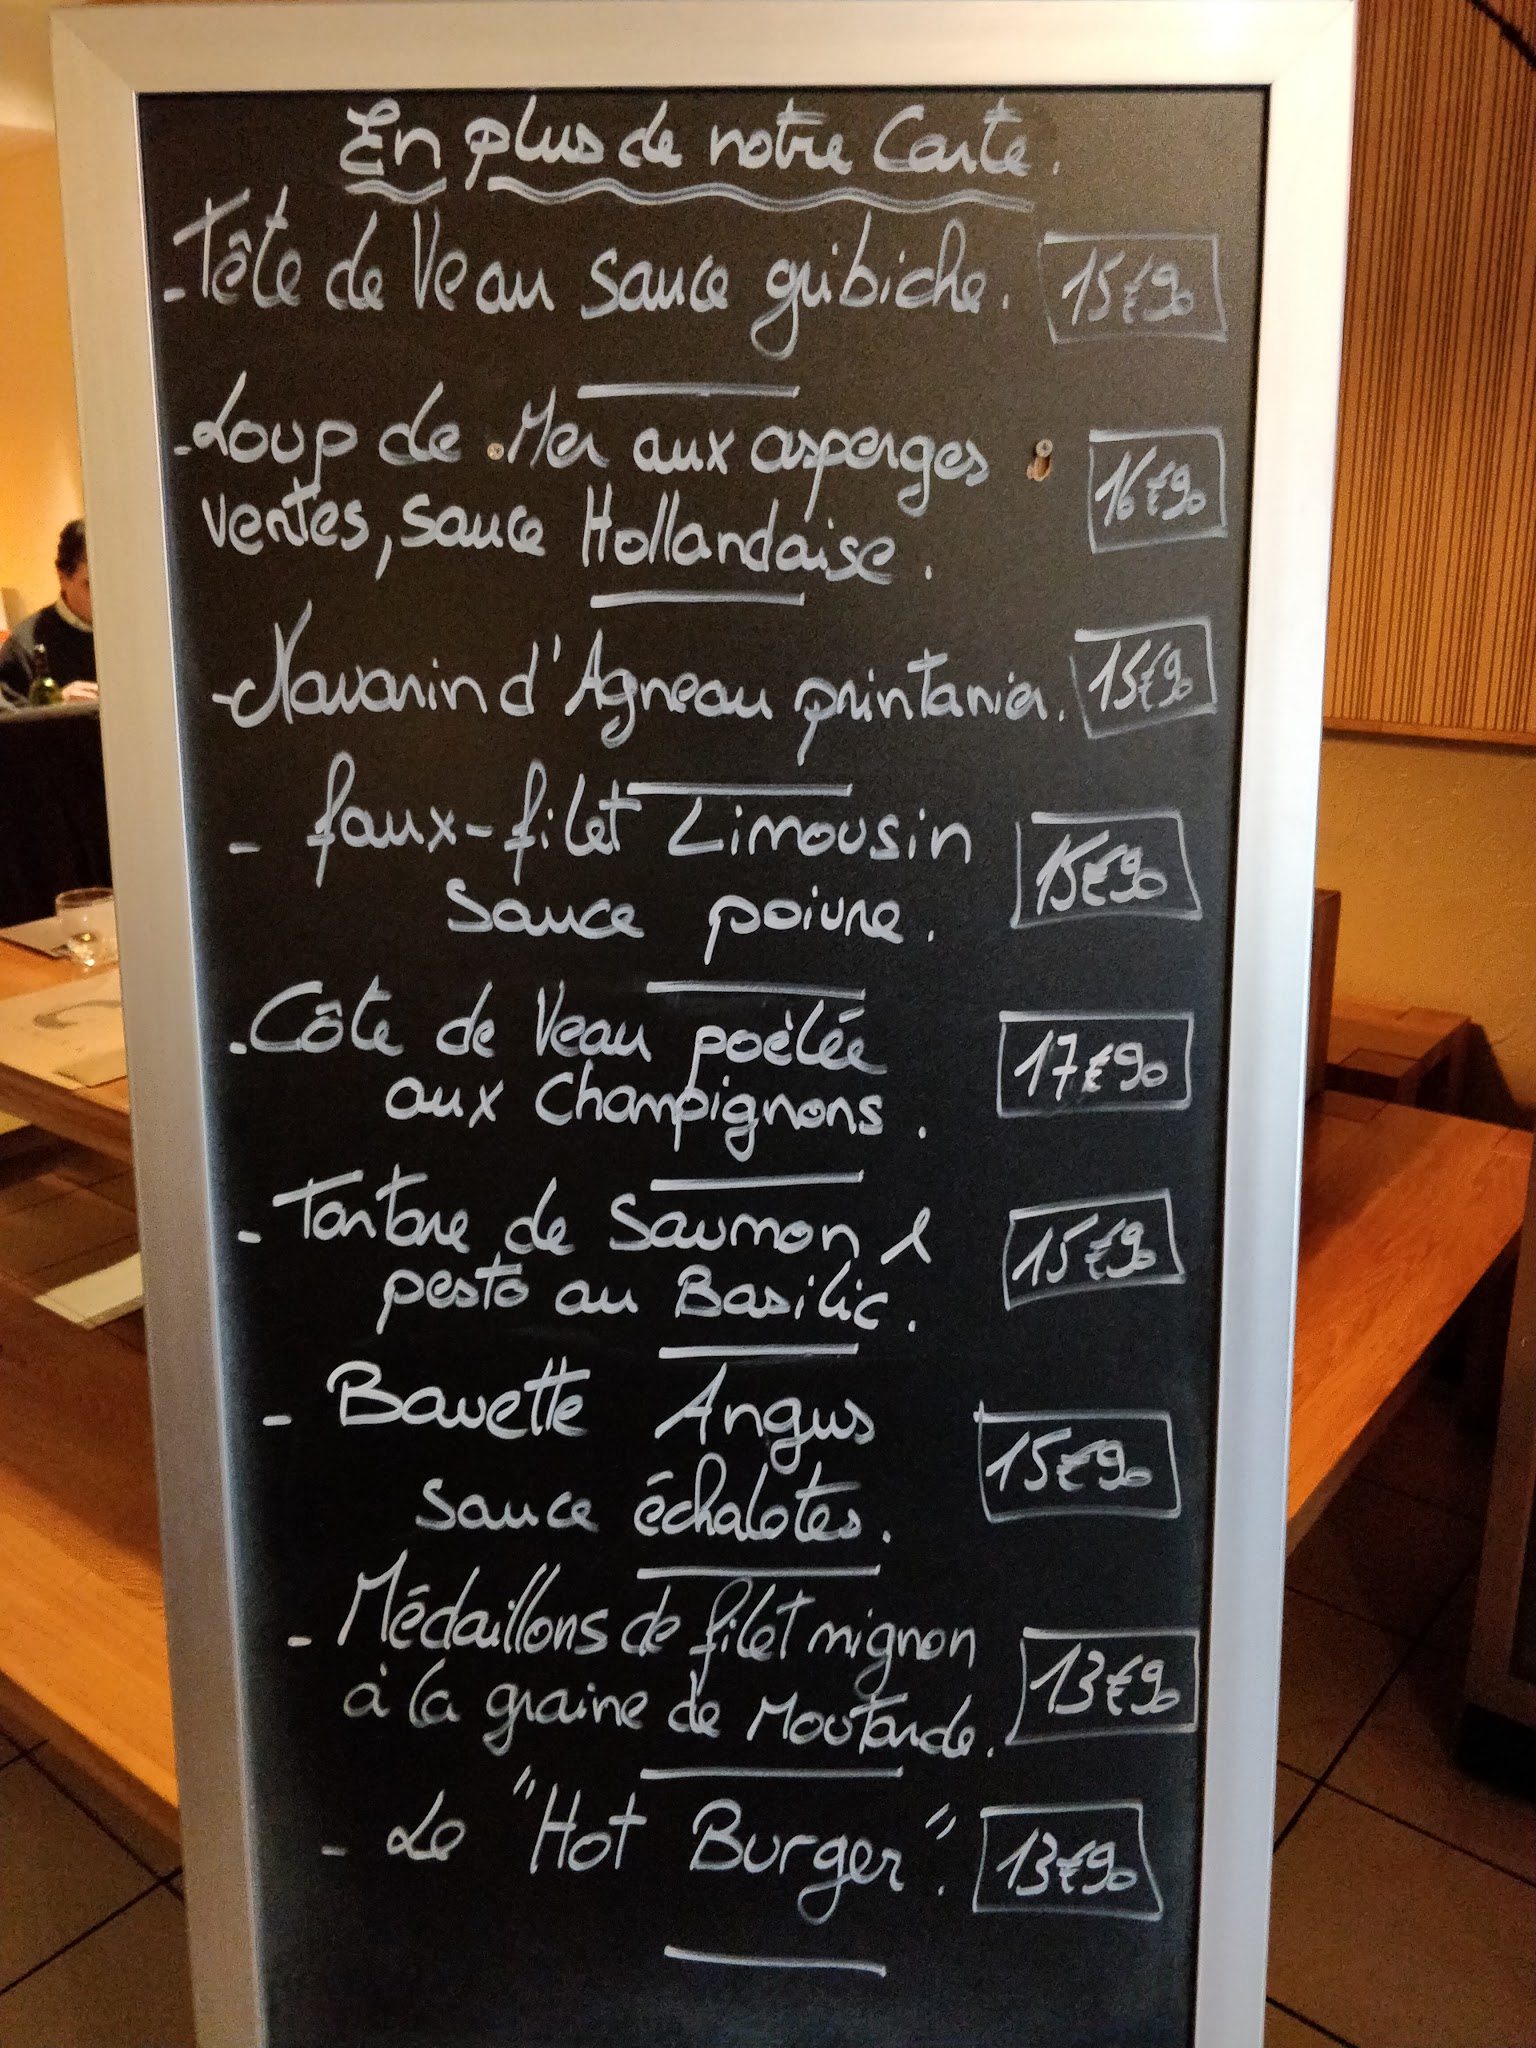 En plus de notre Carte.
- Tête de Veau sauce gribiche. 15€90
- Loup de Mer aux asperges 16€90
vertes, sauce Hollandaise.
- Navarin d'Agneau printanier. 15€90
- faux-filet Limousin 15€90
sauce poivre.
- Côte de Veau poêlée 17€90
aux Champignons.
- Tartare de Saumon & 15€90
pesto au Basilic.
- Bavette Angus 15€90
sauce échalotes.
- Médaillons de filet mignon 13€90
à la graine de Moutarde.
- Le "Hot Burger". 13€90